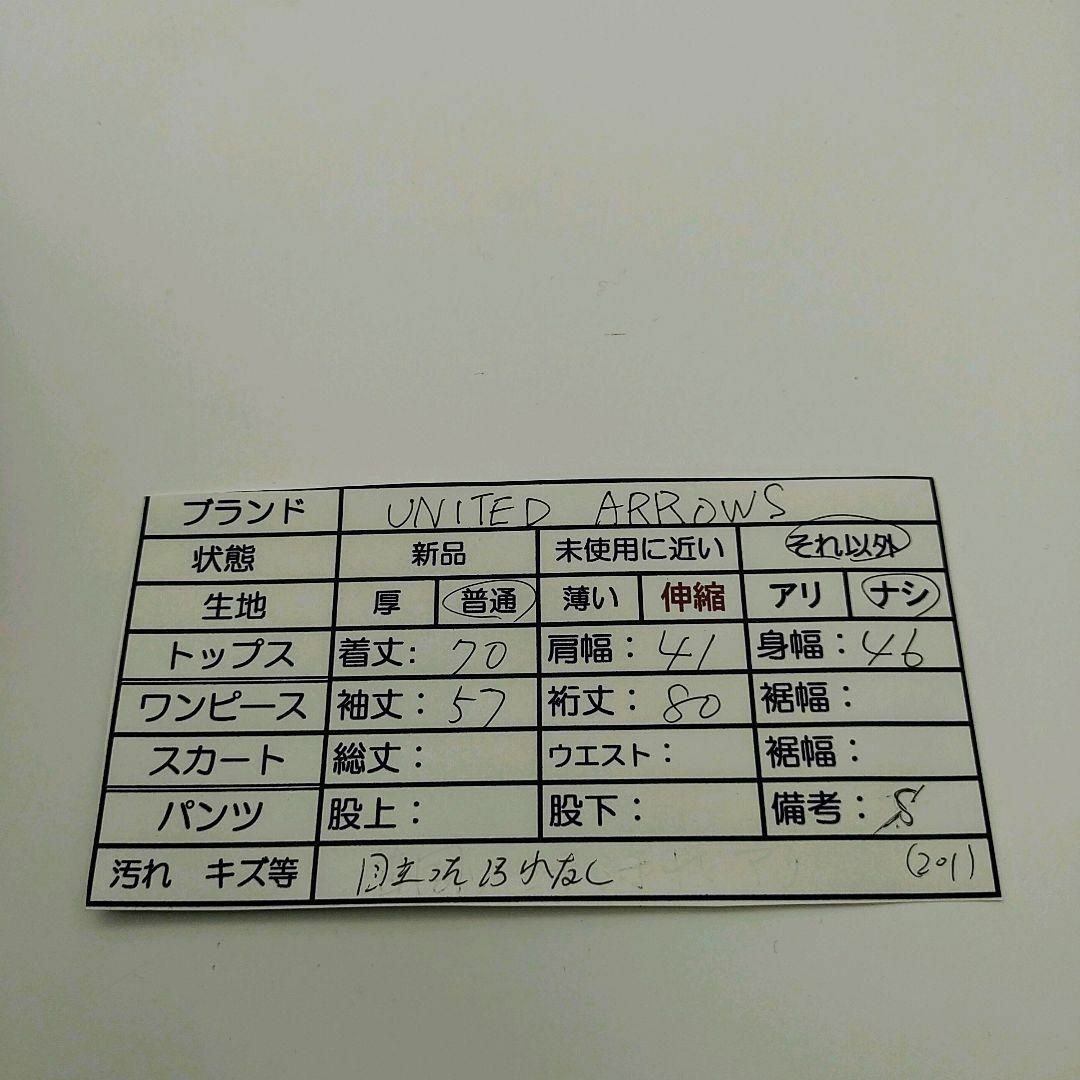 ブランド UNITED ARROWS
状態 新品 未使用に近い それ以外
生地 厚 普通 薄い 伸縮 アリ ナシ
トップス 着丈: 70 肩幅: 41 身幅: 46
ワンピース 袖丈: 57 裄丈: 80 裾幅:
スカート 総丈: ウエスト: 裾幅:
パンツ 股上: 股下: 備考:
汚れ キズ等 目立った汚れなし (201)